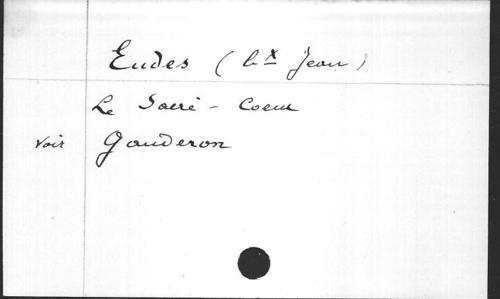 Eudes (bx Jean)
Le Sacré-Coeur
voir Gauderon